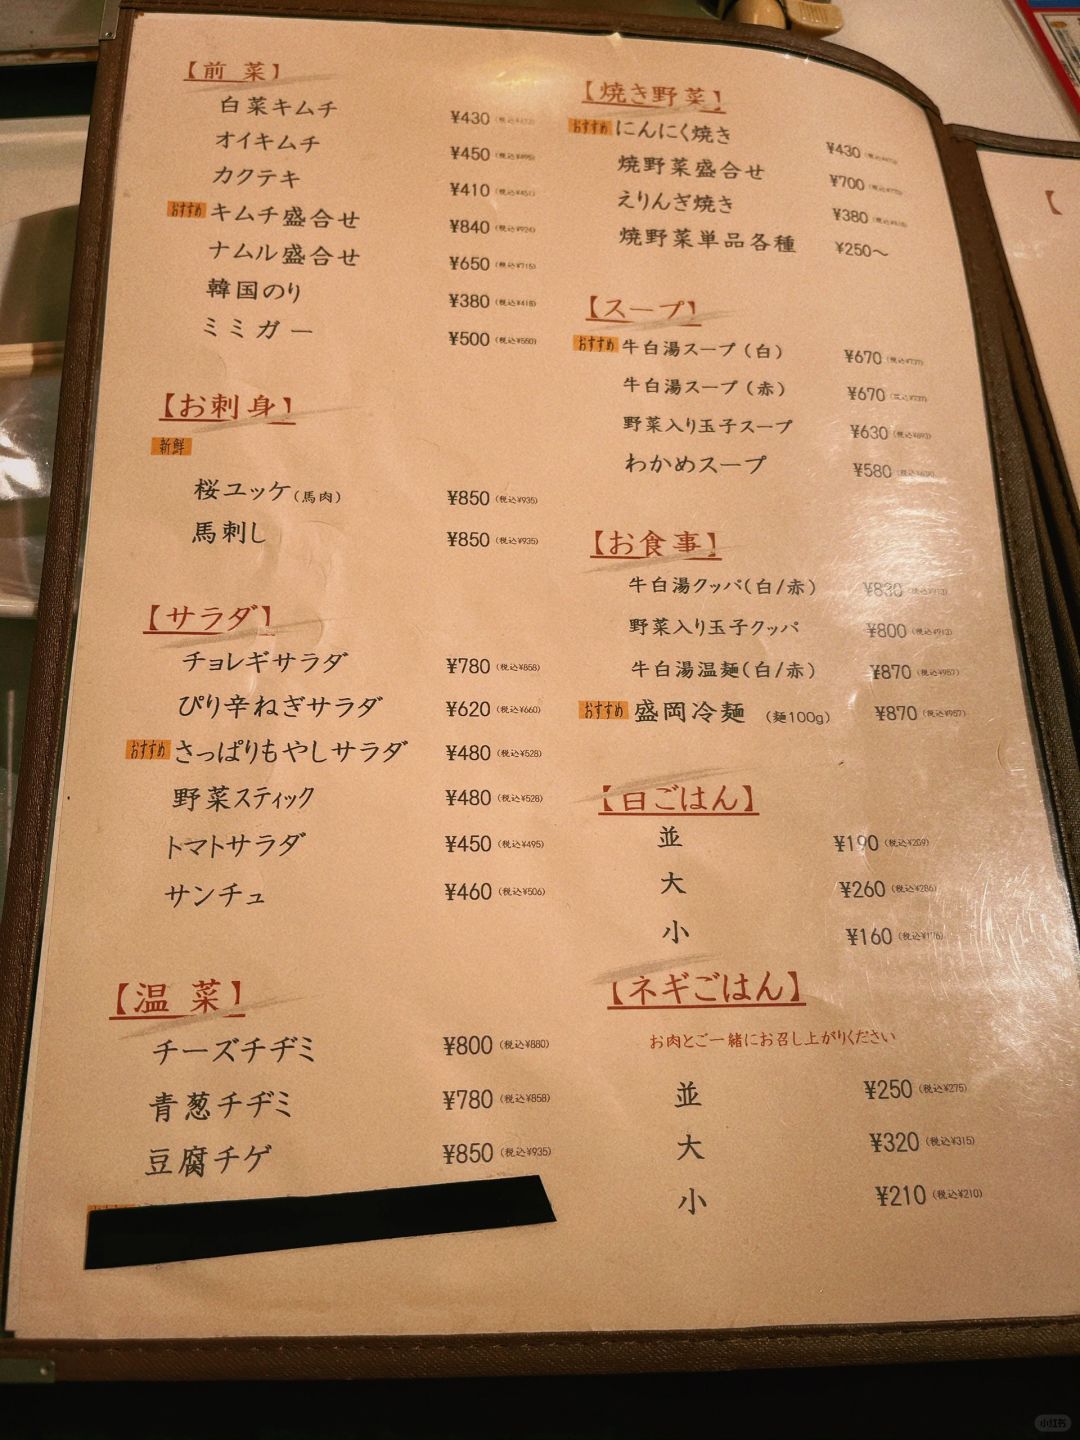 【前 菜】
白菜キムチ ¥430
オイキムチ ¥450
カクテキ ¥410
おすすめ キムチ盛合せ ¥840 (税込¥924)
ナムル盛合せ ¥650 (税込¥715)
韓国のり ¥380 (税込¥418)
ミミガー ¥500 (税込¥550)
【お刺身】
新鮮
桜ユッケ(馬肉) ¥850 (税込¥935)
馬刺し ¥850 (税込¥935)
【サラダ】
チョレギサラダ ¥780 (税込¥858)
ぴり辛ねぎサラダ ¥620 (税込¥660)
おすすめ さっぱりもやしサラダ ¥480 (税込¥528)
野菜スティック ¥480 (税込¥528)
トマトサラダ ¥450 (税込¥495)
サンチュ ¥460 (税込¥506)
【温 菜】
チーズチヂミ ¥800 (税込¥880)
青葱チヂミ ¥780 (税込¥858)
豆腐チゲ ¥850 (税込¥935)
【焼き野菜】
おすすめ にんにく焼き ¥430
焼野菜盛合せ ¥700
えりんぎ焼き ¥380
焼野菜単品各種 ¥250〜
【スープ】
おすすめ 牛白湯スープ(白) ¥670
牛白湯スープ(赤) ¥670
野菜入り玉子スープ ¥630 (税込¥693)
わかめスープ ¥580
【お食事】
牛白湯クッパ(白/赤) ¥830
野菜入り玉子クッパ ¥800
牛白湯温麺(白/赤) ¥870 (税込¥957)
おすすめ 盛岡冷麺 (麺100g) ¥870 (税込¥957)
【白ごはん】
並 ¥190 (税込¥209)
大 ¥260 (税込¥286)
小 ¥160
【ネギごはん】
お肉とご一緒にお召し上がりください
並 ¥250 (税込¥275)
大 ¥320 (税込¥315)
小 ¥210 (税込¥210)
小红书